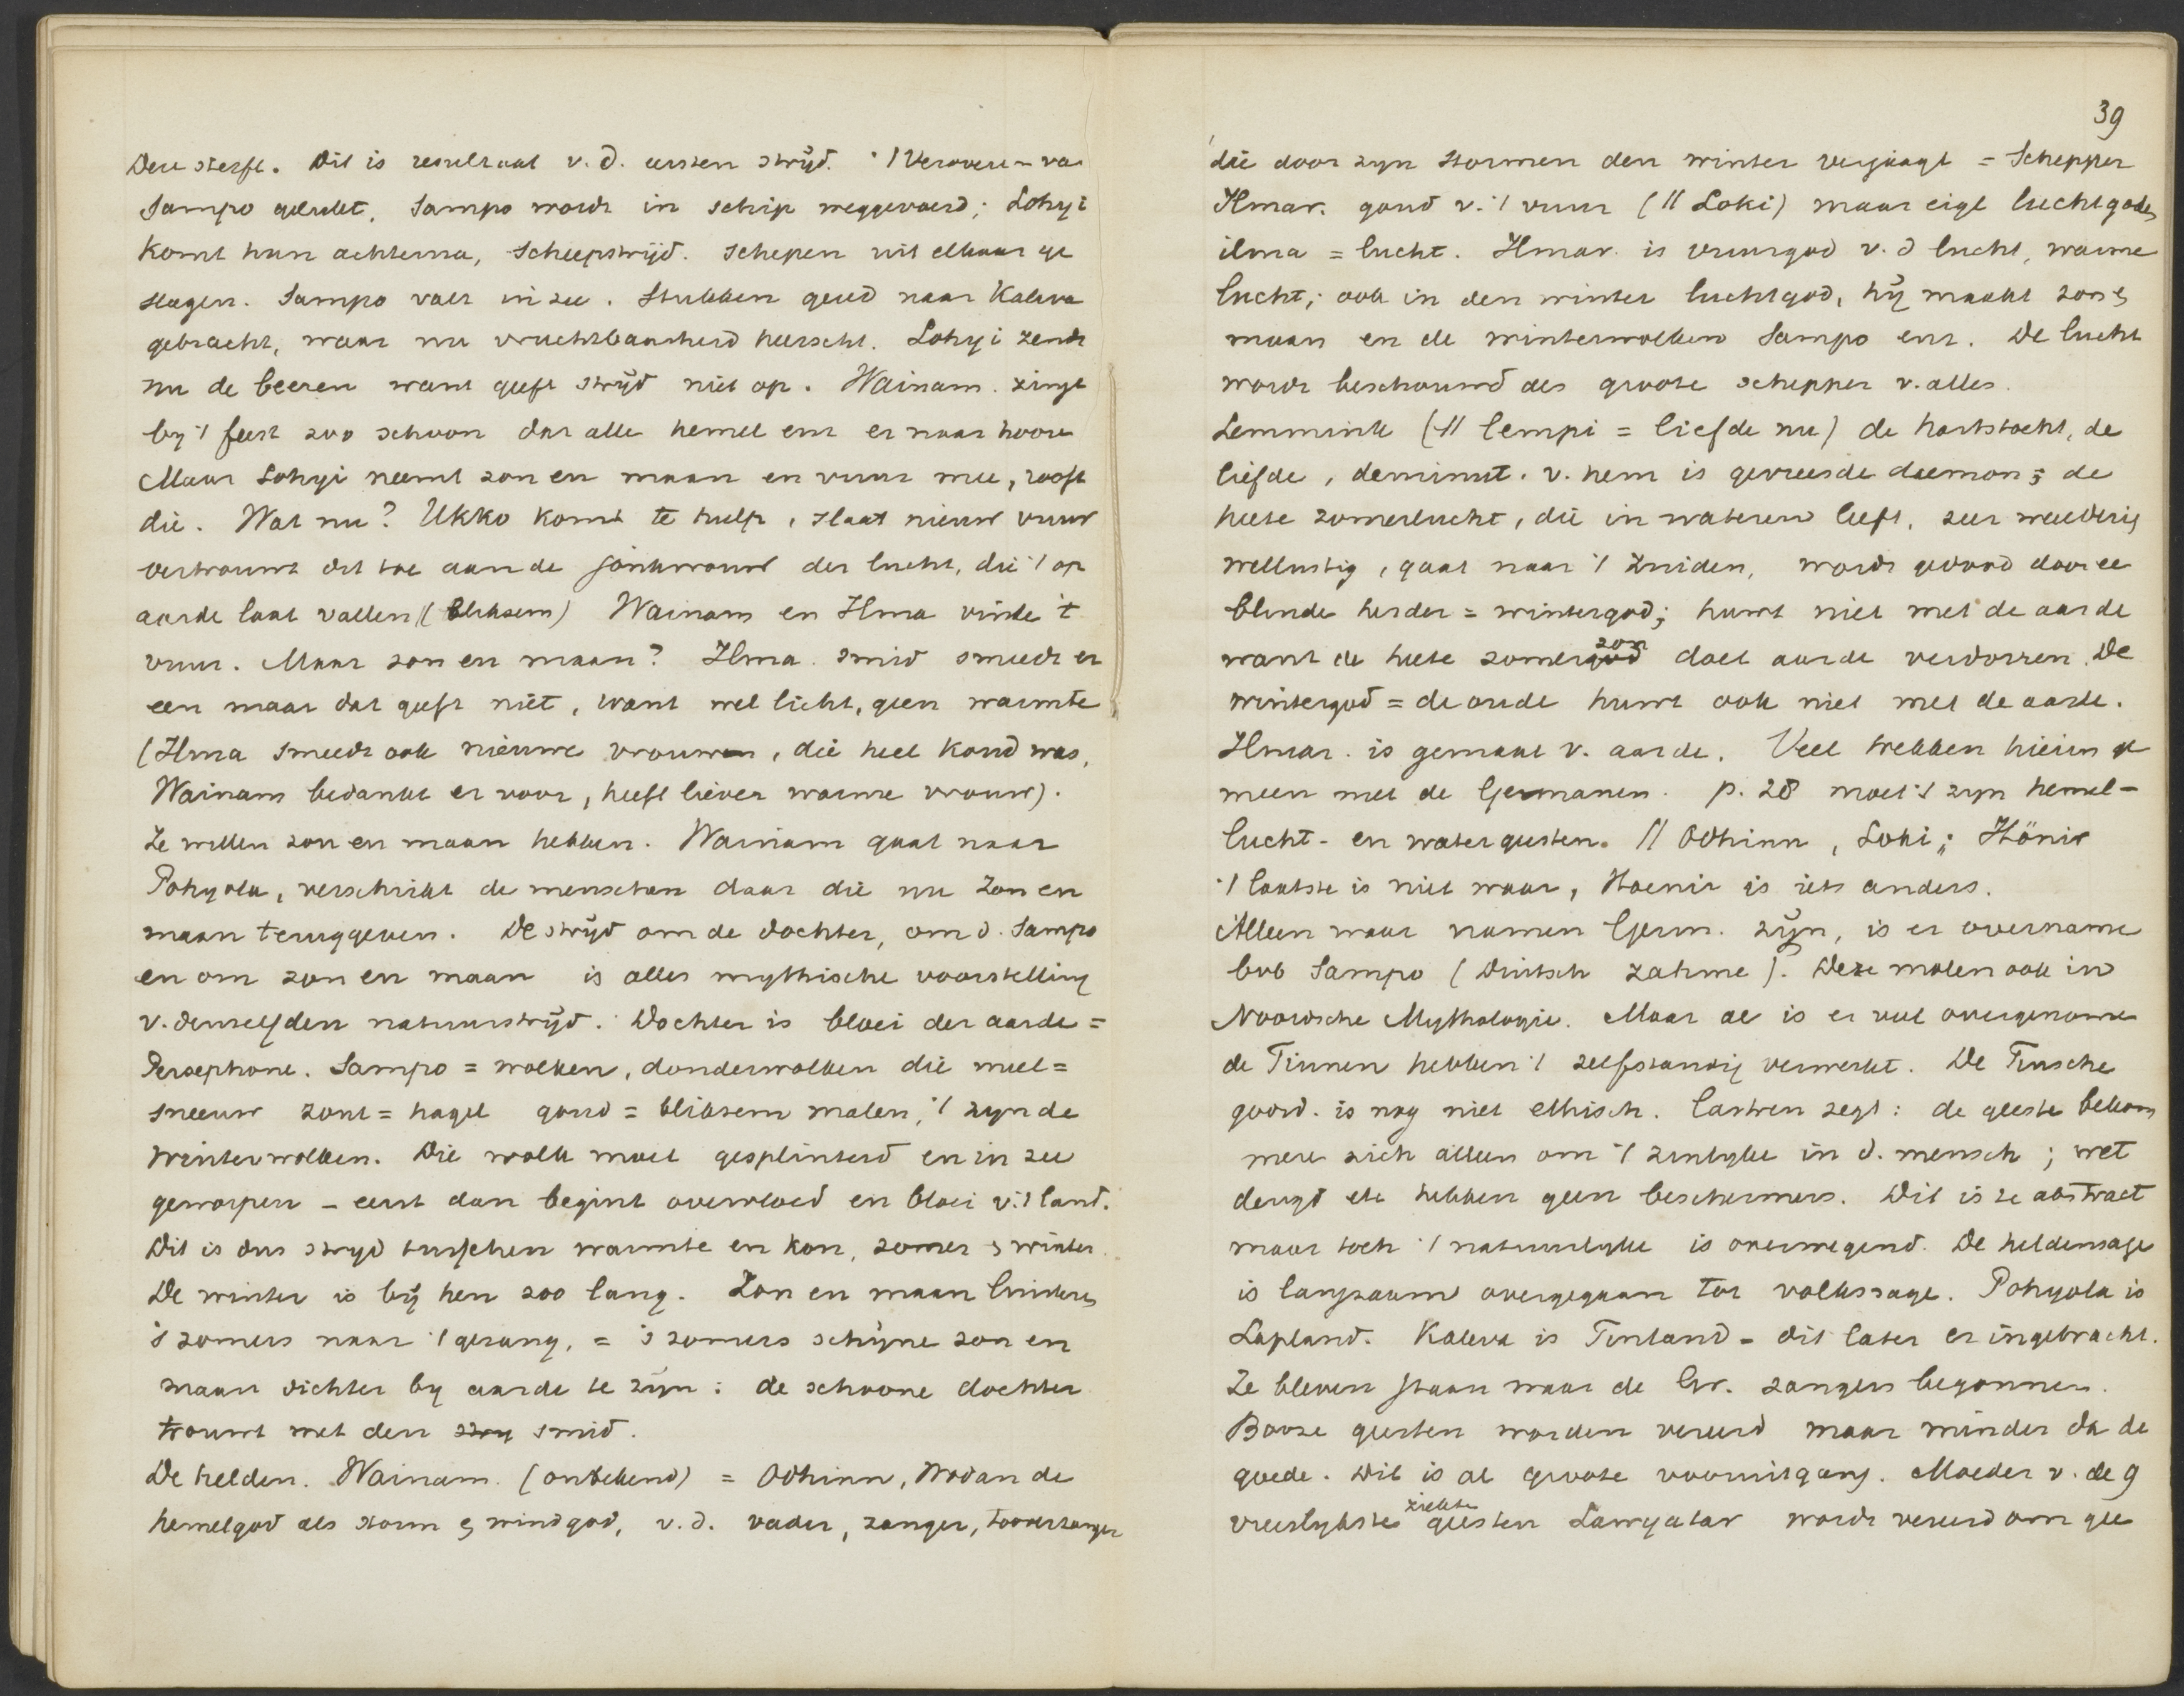 Deze sterft. Dit is resultaat v. d. eersten strijd. 't Veroveren van
Sampo gelukt, Sampo wordt in schip weggevoerd; Lohyi
komt hun achterna, scheepstrijd. Schepen uit elkaar ge
slagen. Sampo valt in zee. Stukken gered naar Kaleva
gebracht, waar nu vruchtbaarheid heerscht. Lohyi zendt
nu de beeren want geeft strijd niet op. Wainam. zingt
by 't feest zoo schoon dat alle hemel enz er naar hoore
Maar Lohyi neemt zon en maan en vuur mee, rooft
die. Wat nu? Ukko komt te hulp, slaat nieuw vuur
vertrouwt dit toe aan de jonkvrouw der lucht, die 't op
aarde laat vallen (bliksem) Wainam en Ilma vinde 't
vuur. Maar zon en maan? Ilma. smid smeedt er
een maar dat geeft niet, want wel licht, geen warmte
(Ilma smeedt ook nieuwe vrouwen, die heel koud was,
Wainam bedankt er voor, heeft liever warme vrouw).
Ze willen zon en maan hebben. Wainam gaat naar
Pohyola, verschrikt de menschen daar die nu zon en
maan teruggeven. De strijd om de dochter, om d. Sampo
en om zon en maan is alles mythische voorstelling
v. denzelfden natuurstrijd. Dochter is bloei der aarde =
Persephone. Sampo = wolken, donderwolken die meel =
sneeuw zout = hagel goud = bliksem malen, 't zyn de
winterwolken. Die wolk moet gesplinterd en in zee
geworpen – eerst dan begint overvloed en bloei v. 't land.
Dit is dus stryd tusschen warmte en kou, zomer & winter.
De winter is bij hen zoo lang. Zon en maan luisteren
's zomers naar 't gezang, = 's zomers schijne zon en
maan dichter by aarde te zijn: de schoone dochter
trouwt met den smid.
De helden. Wainam. (onbekend) = Odhinn, Wodan de
hemelgod als storm & windgod, v. d. vader, zanger, tooverzanger
39
die door zyn stormen den winter verjaagt = Schepper
Ilmar. goud v. 't vuur (// Loki) maar eigl luchtgoden
ilma = lucht. Ilmar. is vuurgod v. d lucht, warme
lucht; ook in den winter luchtgod, hij maakt zon &
maan en de winterwolken Sampo enz. De lucht
wordt beschouwd als groote schepper v. alles.
Lemmink (// lempi = liefde nu) de hartstocht, de
liefde, deminut. v. hem is gevreesde daemon; de
heete zomerlucht, die in wateren leeft, zeer weelderig
wellustig, gaat naar 't Zuiden, wordt gedood door ee
blinde herder = wintergod; huwt niet met de aarde
want de heete zomerzon doet aarde verdorren. De
wintergod = de oude huwt ook niet met de aarde.
Ilmar. is gemaal v. aarde. Veel hebben hierin ge
meen met de Germanen. p. 28 moet 't zyn hemel-
lucht- en watergeesten. // Odhinn, Loki; Hönir
't laatste is niet waar, Hoenir is iets anders.
Alleen waar namen Germ. zijn, is er overname
bvb Sampo (Duitsch zahme). Deze molen ook in
Noorsche Mythologie. Maar al is er veel overgenome
de Finnen hebben 't zelfstandig verwerkt. De Finsche
godsd. is nog niet ethisch. Castren zegt: de geeste bekom
mere zich alleen om 't zinlyke in d. mensch; wet
deugd etc hebben geen beschermers. Dit is te abstract
maar toch 't natuurlyke is overwegend. De heldensage
is langzaam overgegaan tot volkssage. Pohyola is
Lapland. Kaleva is Finland – dit later er ingebracht.
Ze bleven staan waar de Gr. zangers begonnen.
Booze geesten worden vereerd maar minder da de
goede. Dit is al groote vooruitgang. Moeder v. de 9
vreeslykste ziekte geesten Lawyatar wordt vereerd om gee